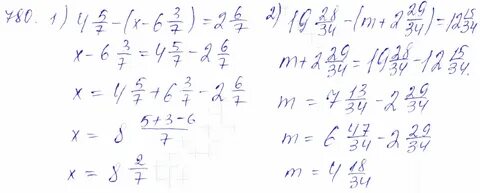 780. 1) 4 5/7 - (x - 6 3/7) = 2 6/7
x - 6 3/7 = 4 5/7 - 2 6/7
x = 4 5/7 + 6 3/7 - 2 6/7
x = 8 (5+3-6)/7
x = 8 2/7
2) 19 28/34 - (m + 2 29/34) = 12 15/34
m + 2 29/34 = 19 28/34 - 12 15/34.
m = 7 13/34 - 2 29/34
m = 6 47/34 - 2 29/34
m = 4 18/34